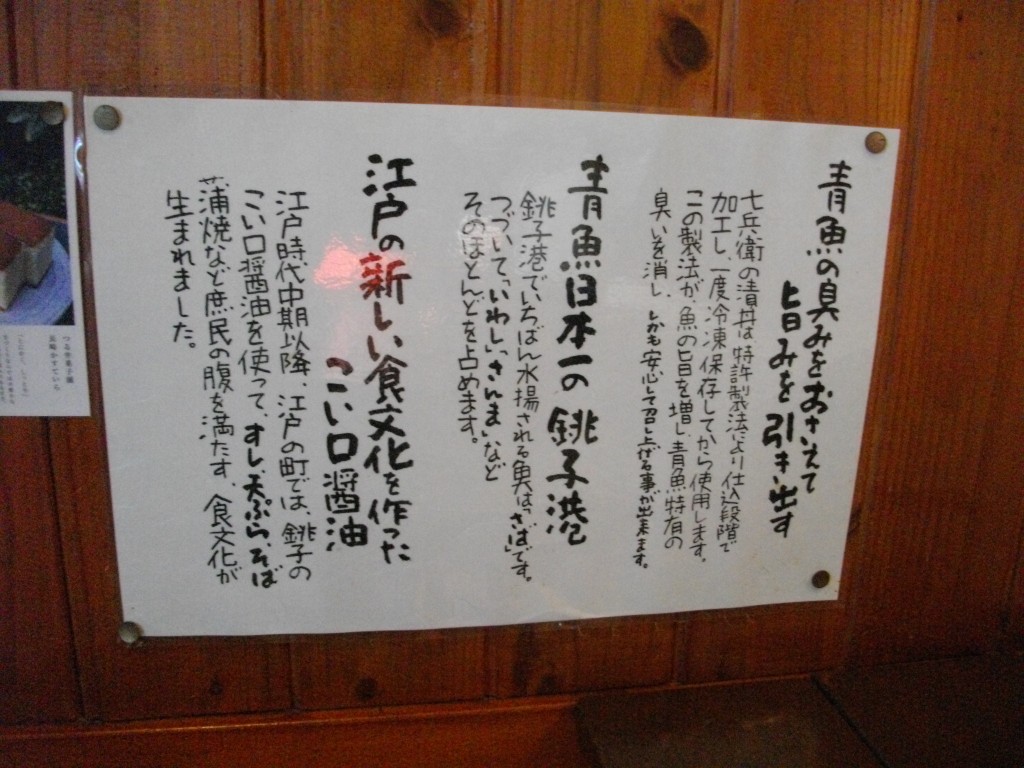 青魚の臭みをおさえて
旨みを引き出す
七兵衛の漬丼は特許製法により仕込段階で
加工し、一度冷凍保存してから使用します。
この製法が、魚の旨を増し、青魚特有の
臭いを消し、しかも安心して召し上がる事が出来ます。
青魚日本一の銚子港
銚子港でいちばん水揚される魚は“さば”です。
つづいて、“いわし”、“さんま”など
そのほとんどを占めます。
江戸の新しい食文化を作った
こい口醤油
江戸時代中期以降、江戸の町では、銚子の
こい口醤油を使って、すし、天ぷら、そば
蒲焼など庶民の腹を満たす、食文化が
生まれました。